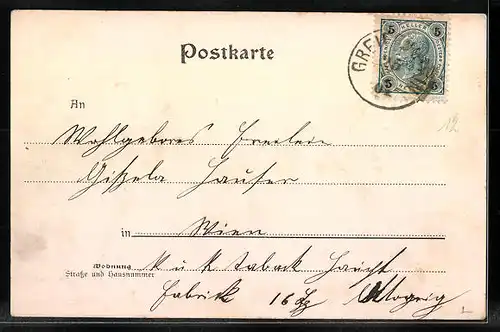 Postkarte
5 HELLER 5
GREI
An
Wohlgebores Freilein
Gissela Hauser
in Wien
Wohnung
Straße und Hausnummer
k u k Taback Haupt
Fabrick 16 Bz
5 5
12